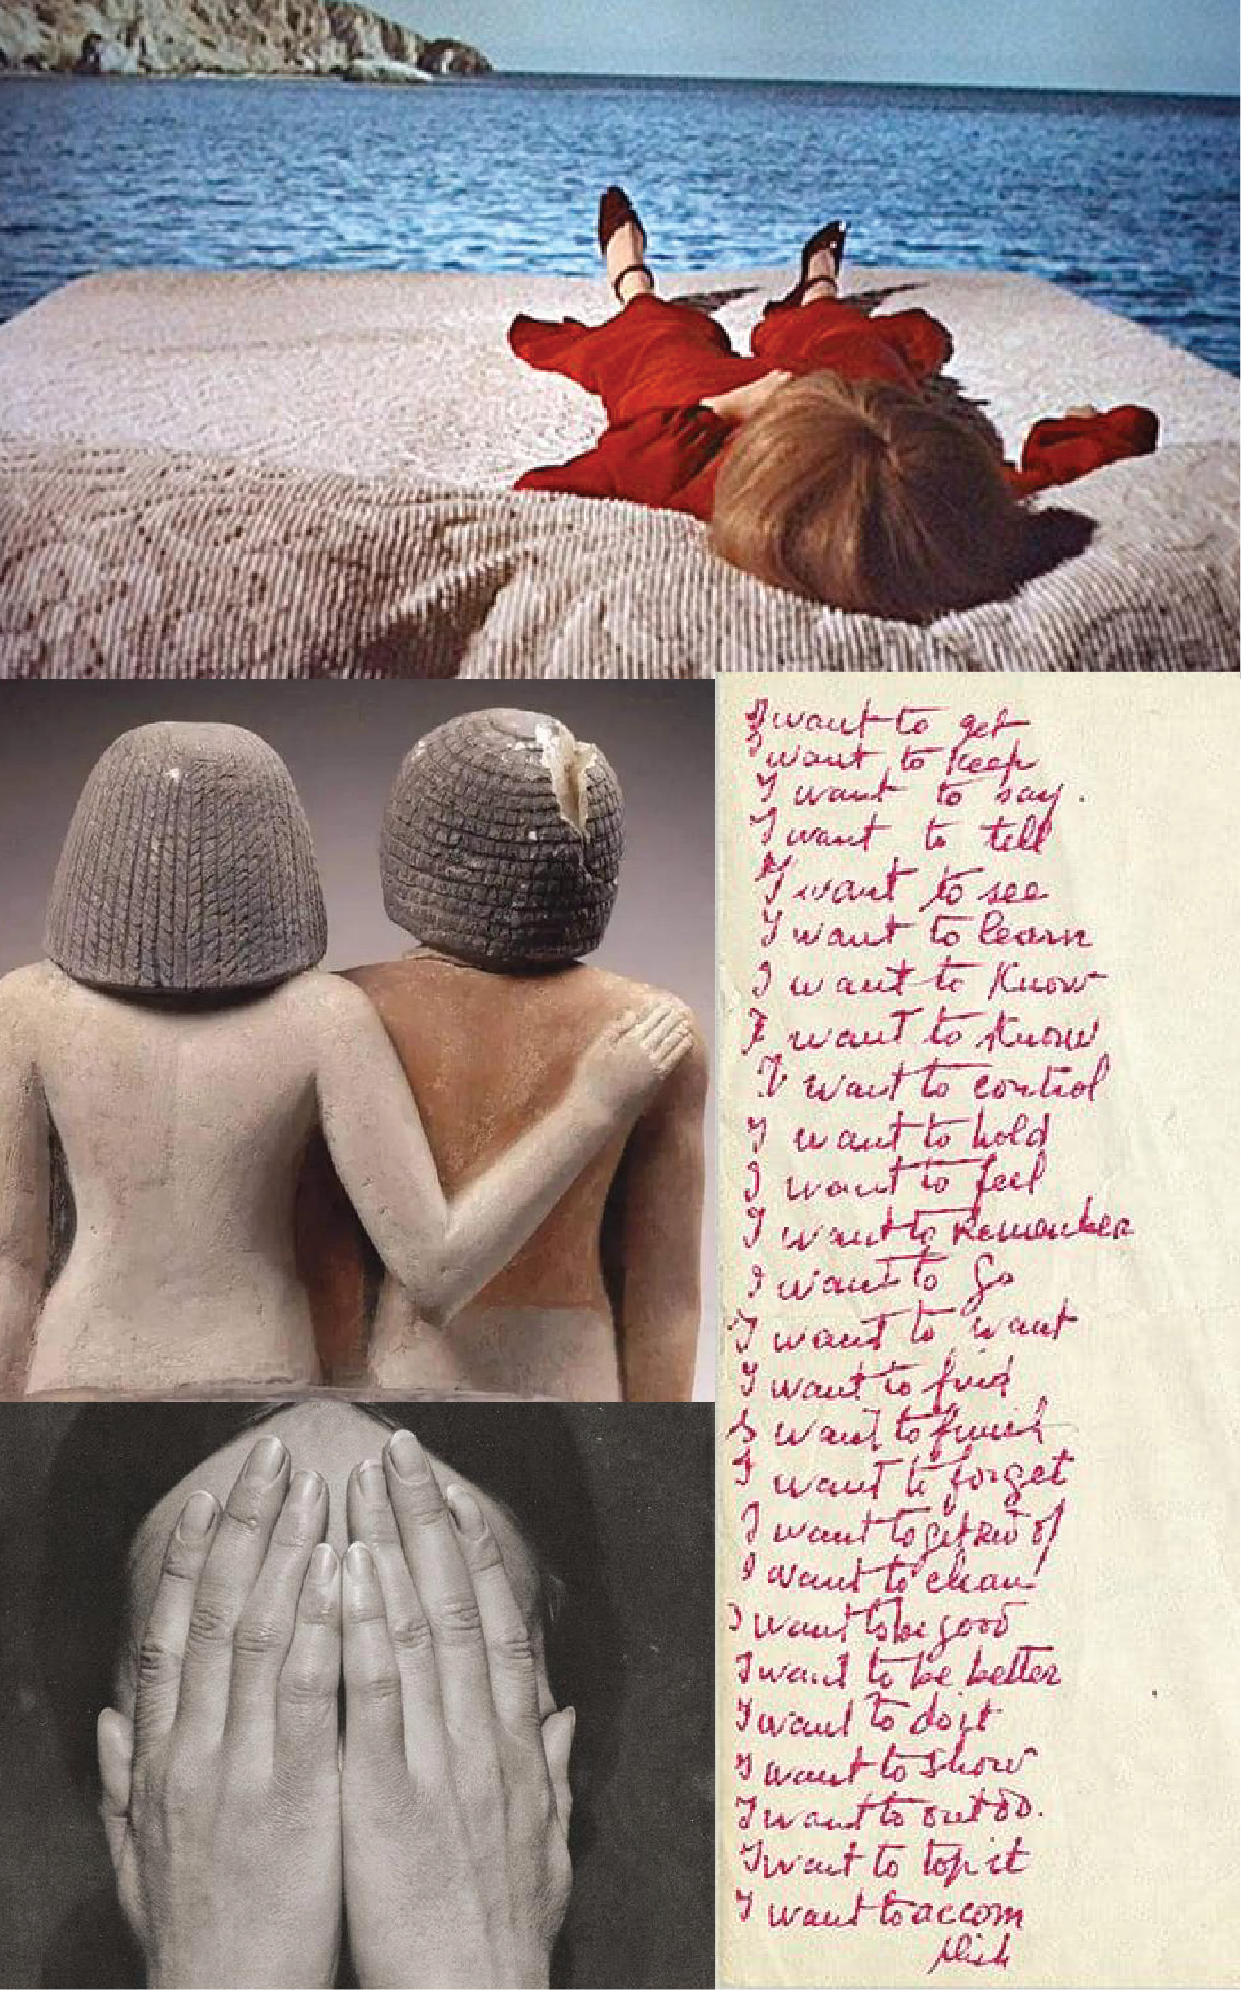 I want to get
I want to keep
I want to say.
I want to tell
I want to see
I want to learn
I want to Know
I want to Know
I want to control
I want to hold
I want to feel
I want to Remember
I want to Go
I want to want
I want to find
I want to finish
I want to forget
I want to get rid of
I want to clean
I want to be good
I want to be better
I want to do it
I want to show
I want to outdo.
I want to top it
I want to accom
plish